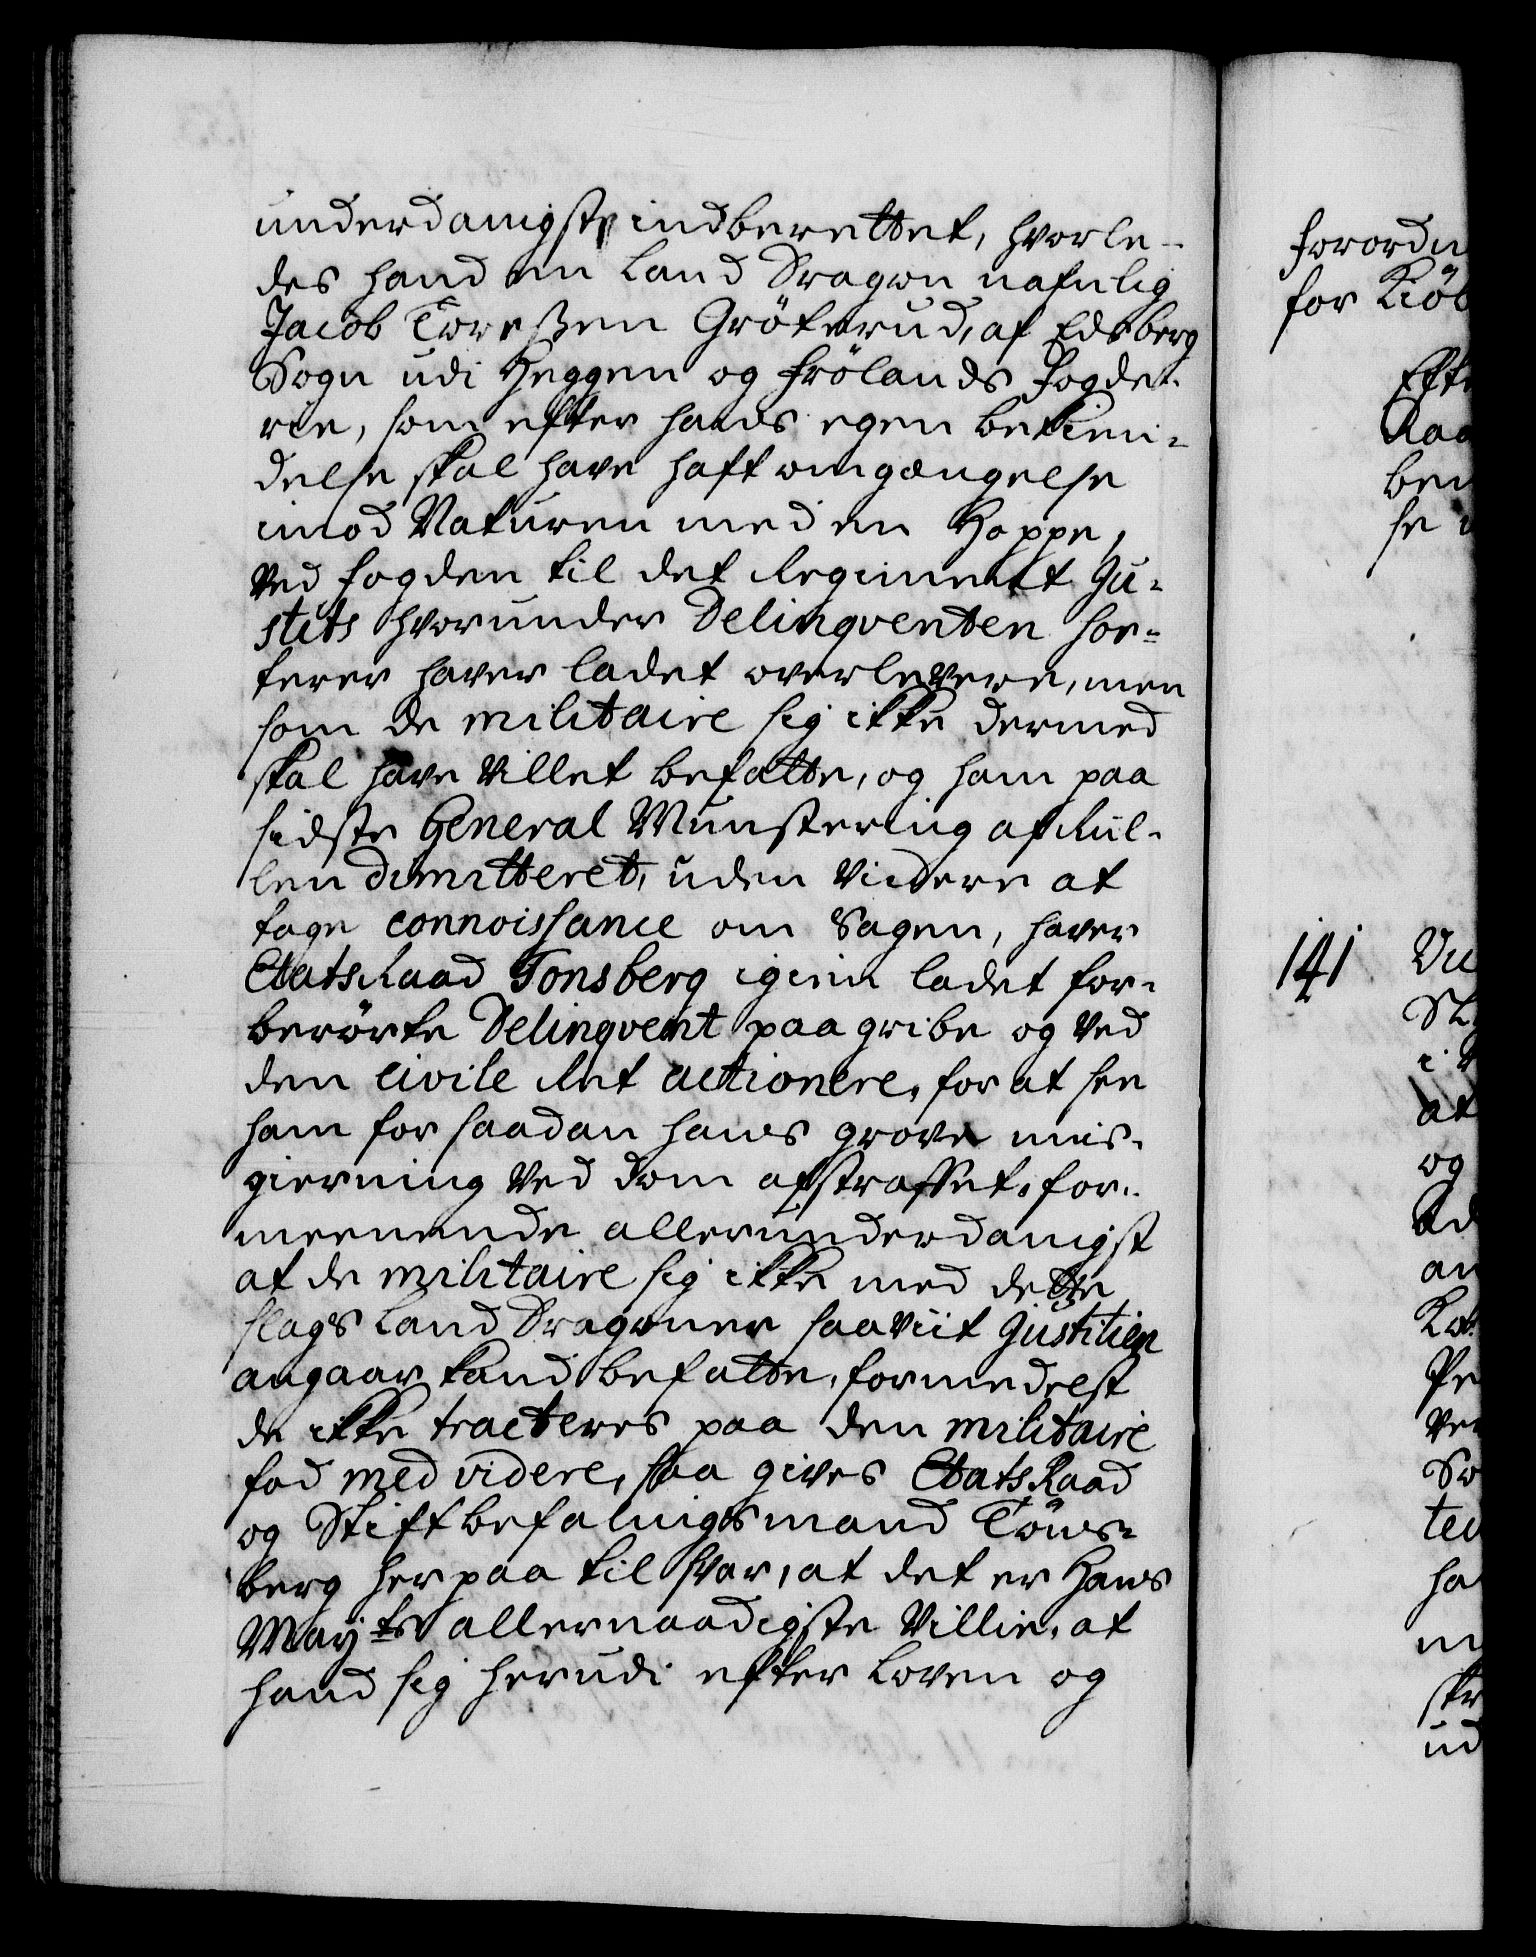 underdanigste indberettet, hvorle-
des hand en Land Dragon nafnlig
Jacob Toreßen Gröterud, af Edsberg
Sogn udi Heggen og Frölands Fogde-
rie, som efter hands egen bekien-
delse skal have haft omgængelse
imod Naturen med en Hoppe,
ved fogden til det Regiments Ju-
stits hvorunder Delinqventen sor-
terer haver ladet overlevere, men
som de militaire sig ikke dermed
skal have villet befatte, og ham paa
sidste General Munstering af Rul-
len dimitteret, uden videre at
tage connoissance om Sagen, haver
EtatsRaad Tonsberg igien ladet for-
berörte Delinqvent paagribe og ved
den civile Ret actionere, for at see
ham for saadan hans grove mis-
gierning ved dom afstraffet, for-
meenende allerunderdanigst
at de militaire sig ikke med dette
slags Land Dragoner saaviit Justitien
angaar kand befatte, formedelst
de ikke tracteres paa den militaire
fod med videre, saa gives EtatsRaad
og Stiftbefalingsmand Töns-
berg herpaa til svar, at det er Hans
Mayts allernaadigste Villie, at
hand sig herudi efter Loven og
forordn
for Kiöb
Efte
Raa
ben
se
141
Vu
at
og
an
Pe
ver
ha
ud